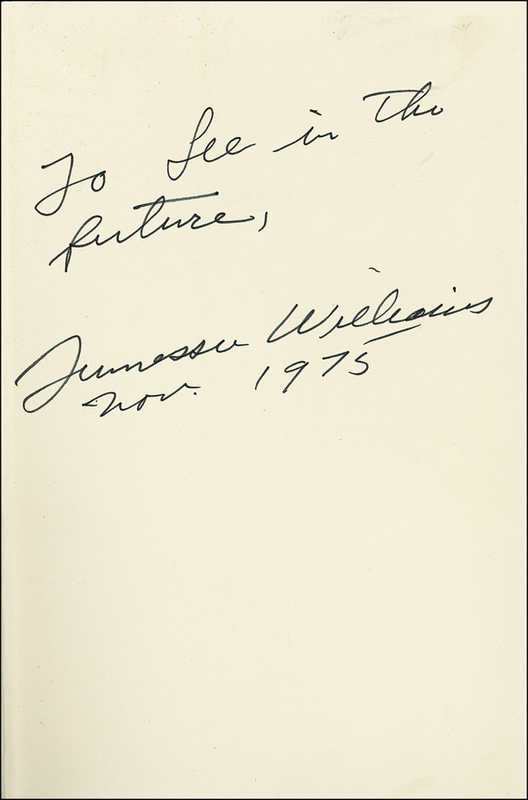 To Lee in the
future,
Tennessee Williams
Nov. 1975